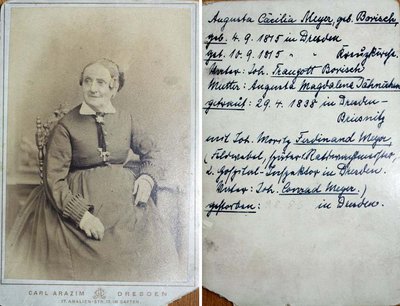 CARL ARAZIM DRESDEN
17. AMALIEN-STR. 17, IM GARTEN.
Augusta Cäcilia Meyer, geb. Borisch,
geb. 4. 9. 1815 in Dresden
get. 10. 9. 1815 " " Kreuzkirche.
Vater: Joh. Traugott Borisch
Mutter: Augusta Magdalene Jähnichen
getraut: 29. 4. 1838 in Dresden-
Briesnitz
mit Joh. Moritz Ferdinand Meyer,
(
2. Hospital-Inspektor in Dresden.
Vater: Joh. Conrad Meyer.)
gestorben: in Dresden.